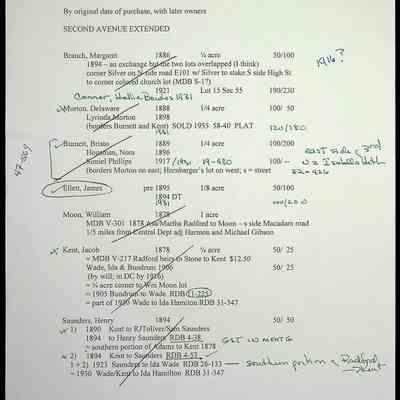 By original date of purchase, with later owners
SECOND AVENUE EXTENDED
Branch, Margaret 1886 ¼ acre 50/100
1916?
1894 – an exchange but the two lots overlapped (I think)
corner Silver on N side road E101 w/ Silver to stake S side High St
to corner colored church lot (MDB S-17)
1921 Lot 15 Sec 55 190/230
Conner, Hallie 1931
Morton, Delaware 1888 1/4 acre 100/ 50
Lyrinda Morton 1898
(borders Burnett and Kent) SOLD 1955 58-40 PLAT
1931 120/180
Burnett, Bristo 1889 1/4 acre 100/200
Houseman, Nora 1896 east side of 3rd
Simiel Phillips 1917 /1931 19-480 100/–
(borders Morton on east; Hornbarger's lot on west; s = street 82-426
47-369
Ellett, James pre 1895 1/8 acre 50/100
1894 DT
1931 100/200
Moon, William 1878 1 acre
MDB V-301 1878 Asa/Martha Radford to Moon – s side Macadam road
1/5 miles from Central Dept adj Harmon and Michael Gibson
Kent, Jacob 1878 ¼ acre 50/ 25
= MDB V-217 Radford heirs to Stone to Kent $12.50
Wade, Ida & Bundrum 1906 50/ 25
(by will; in DC by 1916)
= ¼ acre corner to Wm Moon lot
= 1905 Bundrum to Wade RDB 11-225
= part of 1930 Wade to Ida Hamilton RDB 31-347
Saunders, Henry 1894 50/ 50
1) 1890 Kent to RJToliver/Sam Saunders
1894 to Henry Saunders RDB 4-38
= southern portion of Adams to Kent 1878
2) 1894 Kent to Saunders RDB 4-53
1 + 2) 1923 Saunders to Ida Wade RDB 26-133 — southern portion of Radford → Kent
= 1930 Wade/Kent to Ida Hamilton RDB 31-347